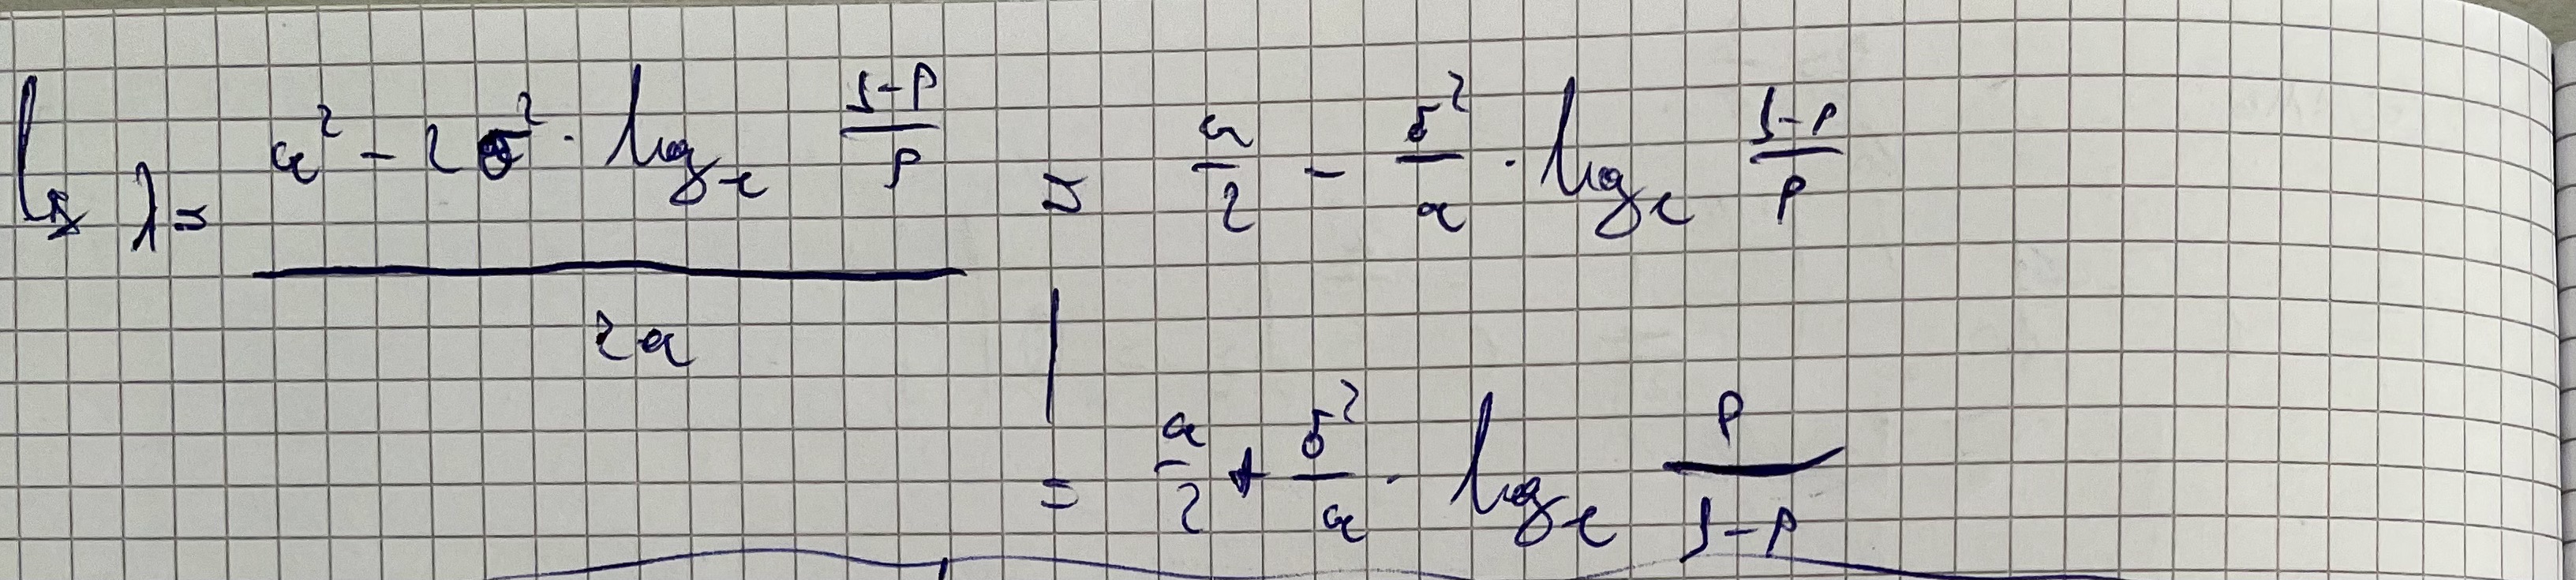 ↳ λ = (a² - 2σ² · logₑ (1-p)/p) / 2a = a/2 - σ²/a · logₑ (1-p)/p
= a/2 + σ²/a · logₑ p/(1-p)